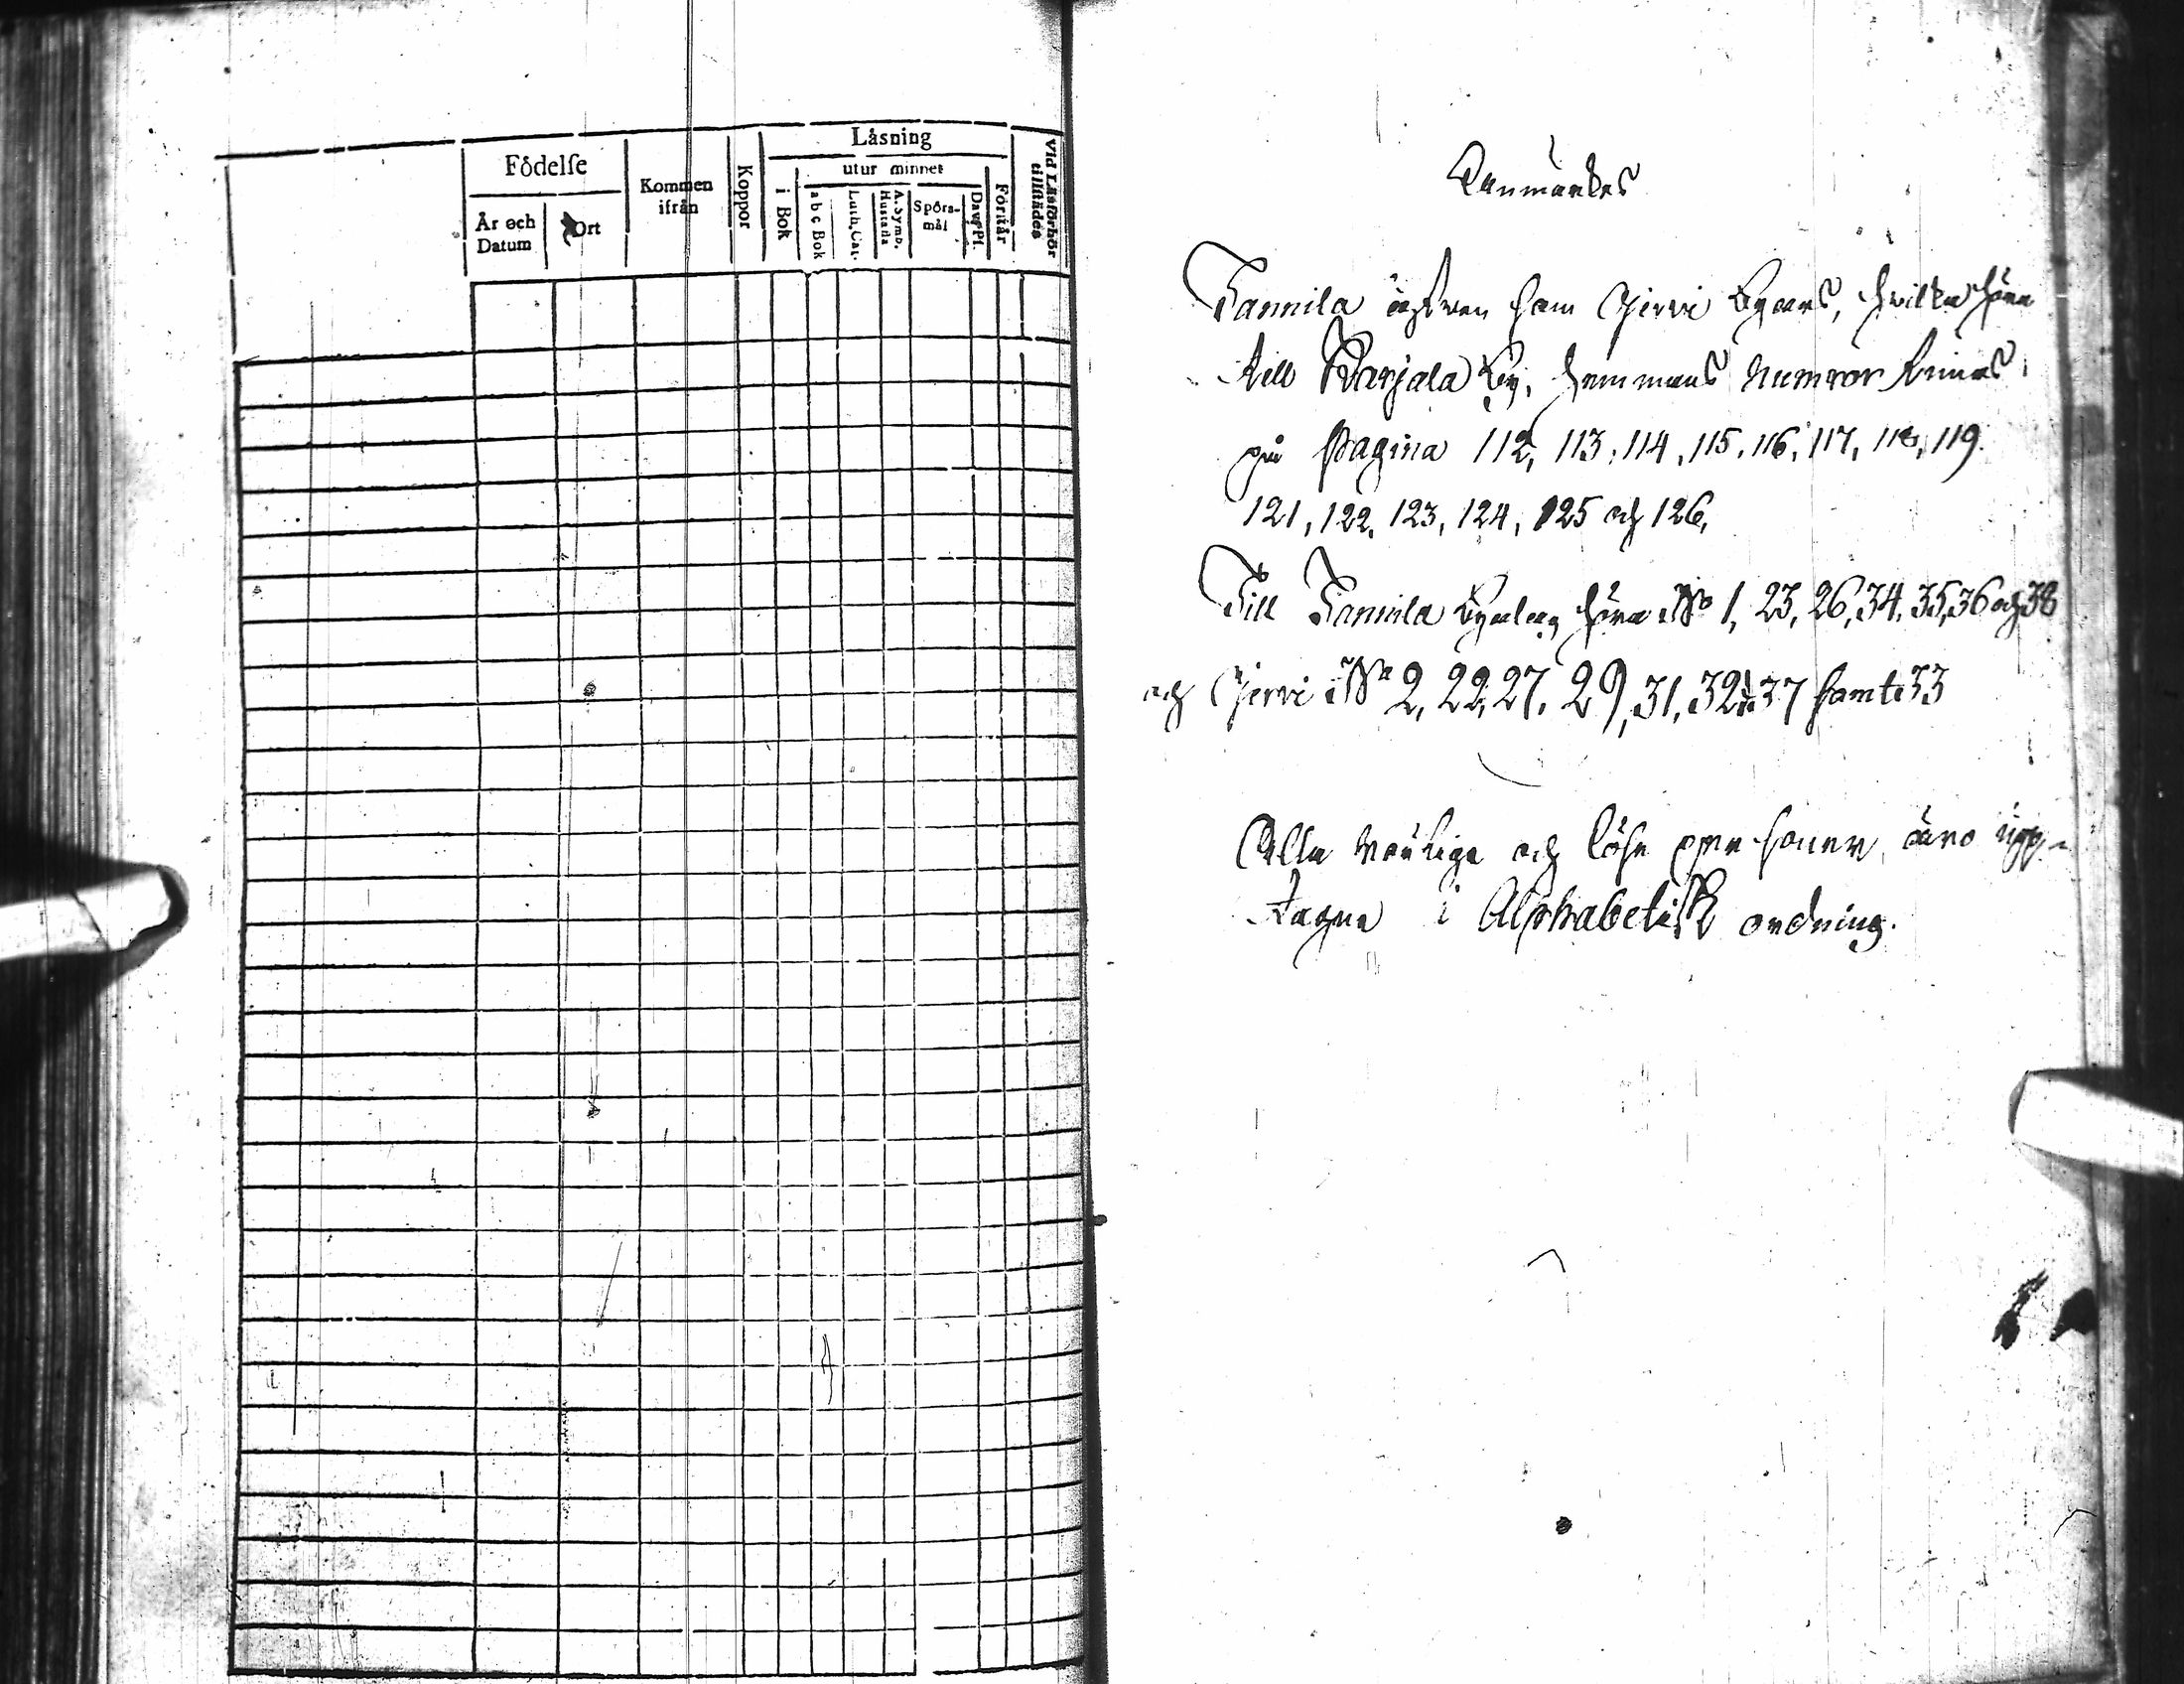 Födelse
År och Datum
Ort
Kommen ifrån
Koppor
Läsning
i Bok
utur minnet
abc Bok
Luth. Cat.
A. Symb. Hustafla
Spörs-mål
Dav. Ps.
Förstår
Vid Läsförhör tillstädes
Anmärkes
Tannila äfven som Jervi Byars, hvilka höra
till Karjala By, hemmans Numror finnas
på Pagina 112, 113, 114, 115, 116, 117, 118, 119.
121, 122, 123, 124, 125 och 126,
Till Tannila Byalag höra No 1, 23, 26, 34, 35, 36 och 38
och Jervi No 2, 22, 27, 29, 31, 32, 37 samt 33
Alla vanlige och löse personer äro upp-
tagne i Alphabetisk ordning.